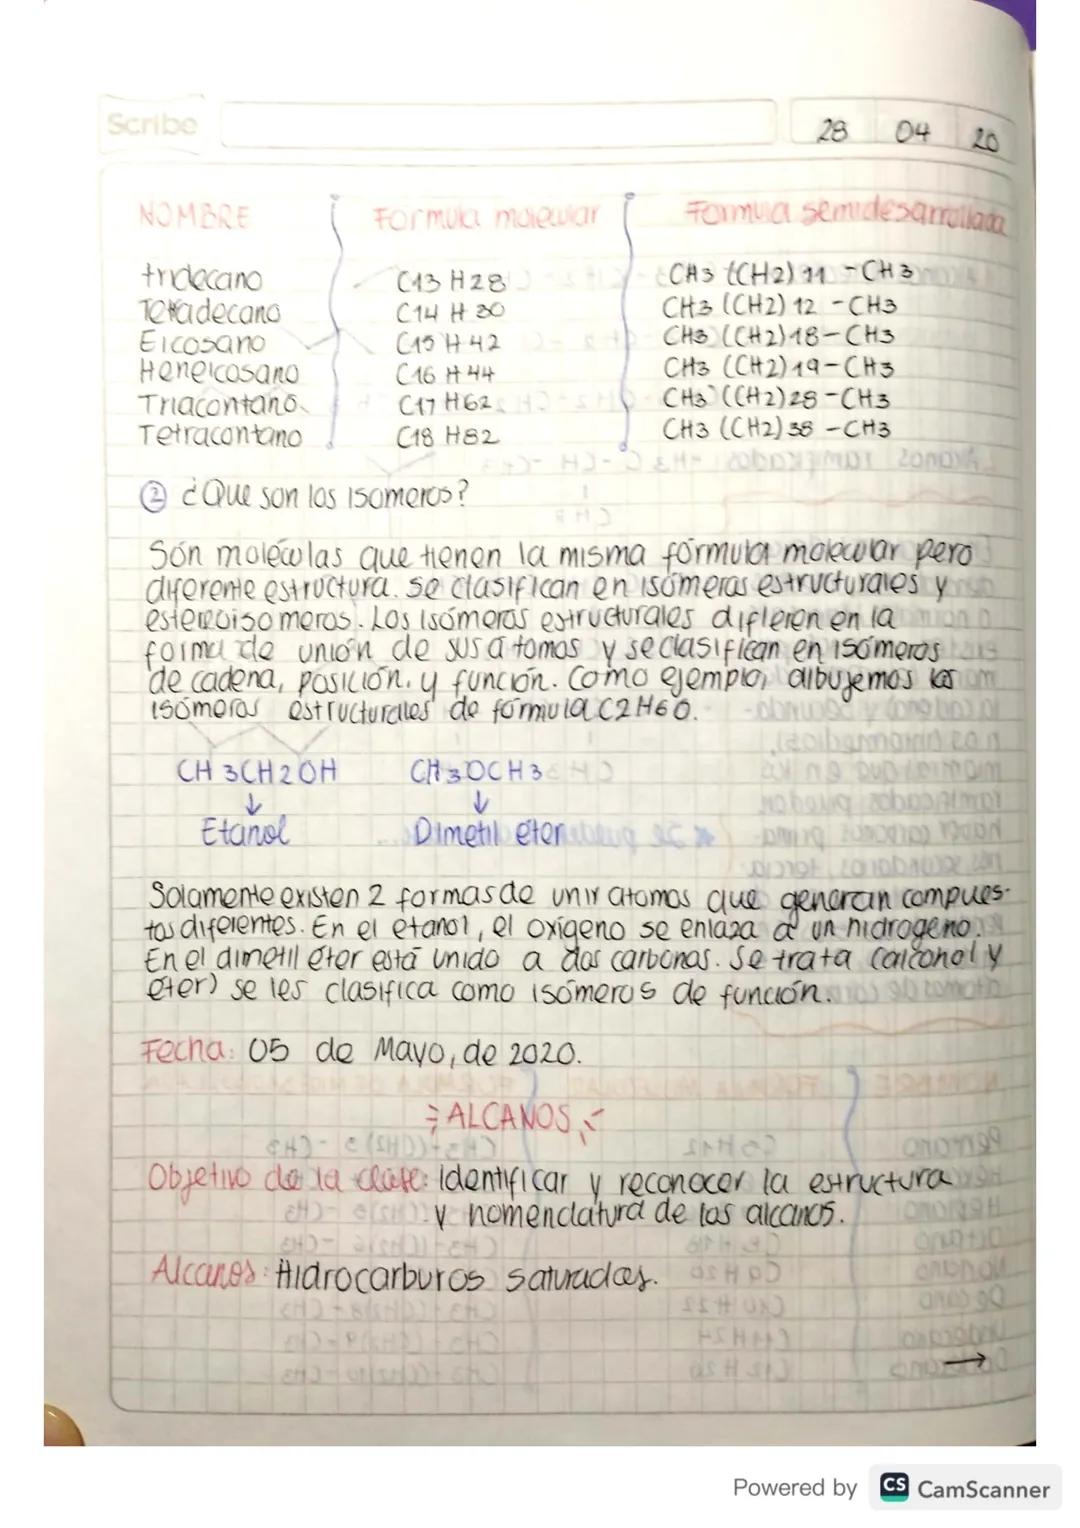 Scribe
28 04 20
NOMBRE Formula molecular Formula semidesarrollada
tridecano C13 H28 CH3 ((CH2) 11 - CH3
Tetradecano C14 H 30 CH3 ((CH2) 12 - CH3
Eicosano C15 H 42 CH3 ((CH2) 18 - CH3
Heneicosano C16 H 44 CH3 ((CH2) 19 - CH3
Triacontano C17 H62 CH3 ((CH2) 28 - CH3
Tetracontano C18 H82 CH3 ((CH2) 38 - CH3
② ¿Que son los isomeros?
Son moléculas que tienen la misma fórmula molecular pero
diferente estructura. se clasifican en isómeros estructurales y
estereoisomeros. Los Isómeros estructurales difieren en la
forma de unión de sus átomos y se clasifican en isómeros
de cadena, posición, y función. Como ejemplo, dibujemos los
isómeros estructurales de fórmula C2H6O.
CH 3CH2OH CH3OCH3
↓ ↓
Etanol Dimetil éter
Solamente existen 2 formas de unir atomos que generan compues-
tos diferentes. En el etanol, el oxígeno se enlaza a un hidrogeno.
En el dimetil éter está unido a dos carbonos. Se trata (alcohol y
éter) se les clasifica como isómeros de función.
Fecha: 05 de Mayo, de 2020.
ALCANOS
Objetivo de la clase: Identificar y reconocer la estructura
y nomenclatura de los alcanos.
Alcanos: Hidrocarburos saturados.
→
Powered by CS CamScanner